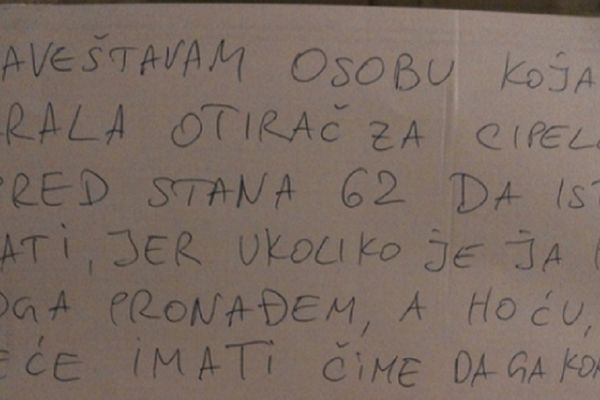 AVEŠTAVAM OSOBU KOJA
RALA OTIRAČ ZA CIPEL
PRED STANA 62 DA IST
ATI, JER UKOLIKO JE JA
OGA PRONAĐEM, A HOĆU,
EĆE IMATI ČIME DA GA KOR